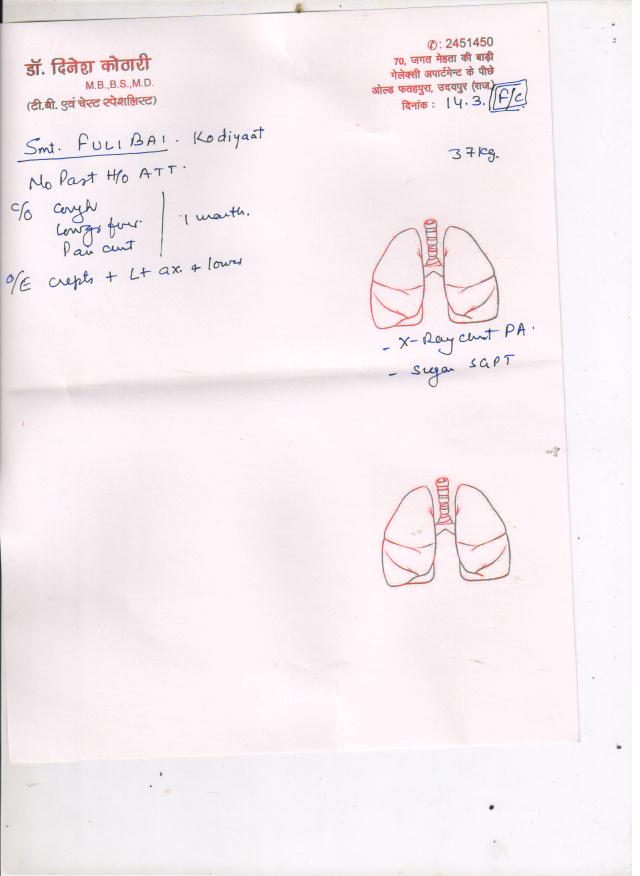 डॉ. दिनेश कोठारी
M.B.,B.S.,M.D.
(टी.बी. एवं चेस्ट स्पेशलिस्ट)
✆: 2451450
70, जगत मेहता की बाड़ी
गेलेक्सी अपार्टमेन्ट के पीछे
ओल्ड फतहपुरा, उदयपुर (राज.)
दिनांक : 14.3. F/C
Smt. FULI BAI. Kodiyaat
37 Kg.
No Past H/o ATT.
C/O Cough
Low gr fever. 1 month.
Pain chest
O/E crepts + Lt ax. + lower
- X-Ray chest PA.
- Sugar SGPT